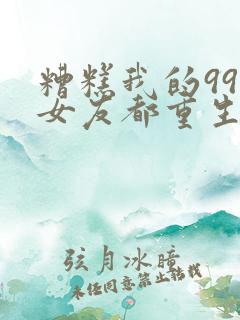 糟糕我的99
女友都重生
弦月冰暗
未经同意禁止转载